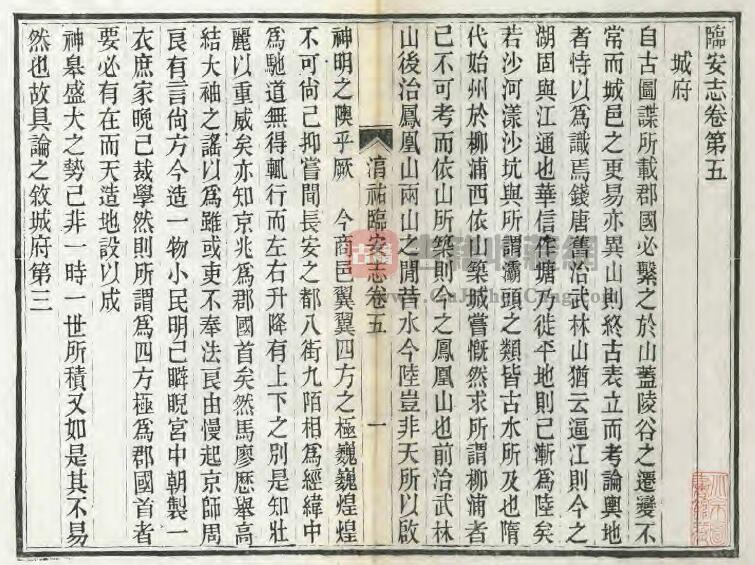 臨安志卷第五
城府
自古圖諜所載郡國必繫之於山蓋陵谷之遷變不
常而城邑之更易亦異山則終古表立而考論輿地
者恃以爲識焉錢唐舊治武林山猶云逼江則今之
湖固與江通也華信作塘乃徙平地則已漸爲陸矣
若沙河漾沙坑與所謂灞頭之類皆古水所及也隋
代始州於柳浦西依山築城嘗慨然求所謂柳浦者
已不可考而依山所築則今之鳳凰山也前治武林
山後治鳳凰山兩山之閒昔水今陸豈非天所以啟
淯祐臨安志卷五
一
神明之隩乎厥 今商邑翼翼四方之極巍巍煌煌
不可尙已抑嘗聞長安之都八街九陌相爲經緯中
爲馳道無得輒行而左右升降有上下之別是知壯
麗以重威矣亦知京兆爲郡國首矣然馬廖歷舉高
結大袖之謠以爲雖或吏不奉法良由慢起京師周
良有言尙方今造一物小民明已睥睨宮中朝製一
衣庶家晚已裁學然則所謂爲四方極爲郡國首者
要必有在而天造地設以成
神皋盛大之勢已非一時一世所積又如是其不易
然也故具論之敘城府第三